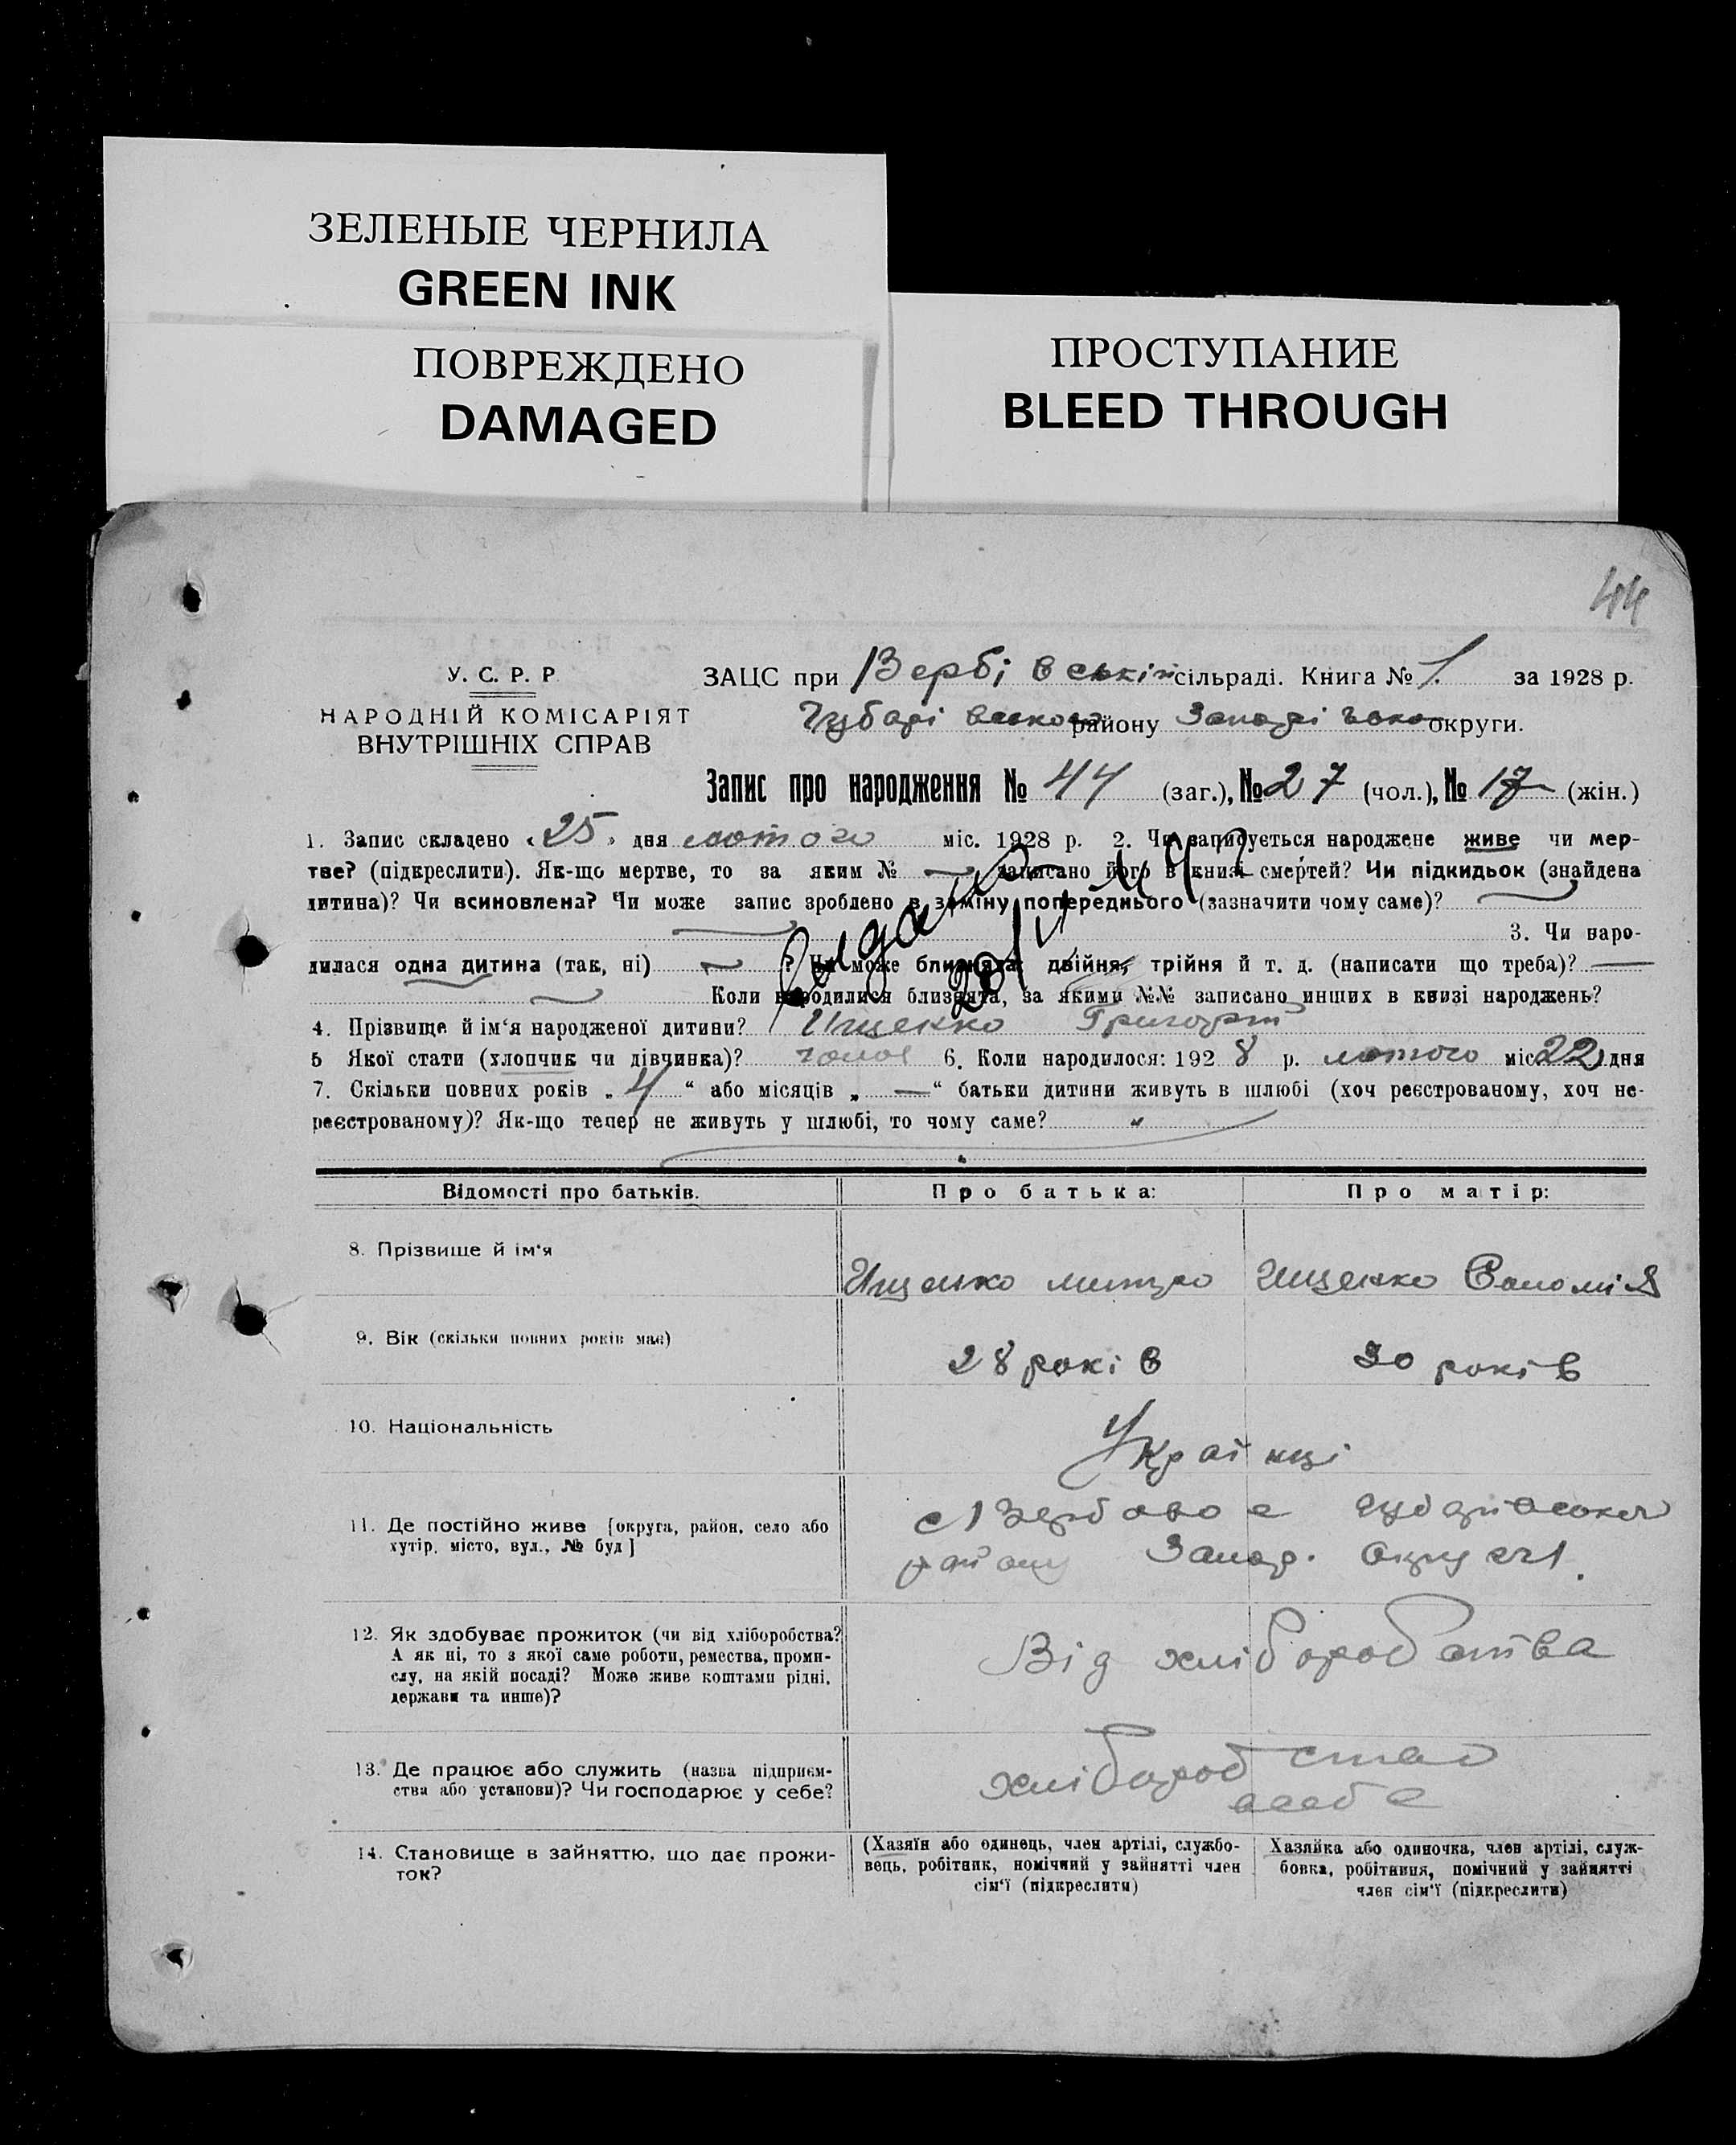 ЗЕЛЕНЫЕ ЧЕРНИЛА
GREEN INK
ПОВРЕЖДЕНО
DAMAGED
ПРОСТУПАНИЕ
BLEED THROUGH
44
У. С. Р. Р
НАРОДНІЙ КОМІСАРІЯТ
ВНУТРІШНІХ СПРАВ
ЗАЦС при Вербівській сільраді. Книга № 1. за 1928 р.
району округи.
Запис про народження № 44 (заг.), № 27 (чол.), № 17 (жін.)
1. Запис складено „25" дня лютого міс. 1928 р. 2. Чи записується народжене живе чи мер-
тве? (підкреслити). Як-що мертве, то за яким № — записано його в книзі смертей? Чи підкидьок (знайдена
дитина)? Чи всиновлена? Чи може запис зроблено в заміну попереднього (зазначити чому саме)?
3. Чи наро-
дилася одна дитина (так, ні) ? Чи може близнята: двійня, трійня й т. д. (написати що треба)? —
Коли народилися близнята, за якими №№ записано инших в книзі народжень?
4. Прізвище й ім'я народженої дитини? Ищенко Григорій
5 Якої стати (хлопчик чи дівчинка)? 6. Коли народилося: 1928 р. лютого міс. 22 дня
7. Скільки повних років „4" або місяців „—" батьки дитини живуть в шлюбі (хоч реєстрованому, хоч не-
реєстрованому)? Як-що тепер не живуть у шлюбі, то чому саме? "
Відомості про батьків. Про батька: Про матір:
8. Прізвище й ім'я
Ищенко Ищенко
9. Вік (скільки повних років має)
28 років 30 років
10. Національність
Українці
11. Де постійно живе [округа, район, село або
хутір, місто, вул., № буд]
району Запор. округи.
12. Як здобуває прожиток (чи від хліборобства?
А як ні, то з якої саме роботи, ремества, проми-
слу, на якій посаді? Може живе коштами рідні,
держави та инше)?
Від хліборобства
13. Де працює або служить (назва підприєм-
ства або установи)? Чи господарює у себе?
14. Становище в зайняттю, що дає прожи-
ток?
(Хазяїн або одинець, член артілі, службо-
вець, робітник, помічний у зайнятті член
сім'ї (підкреслити)
Хазяйка або одиночка, член артілі, служ-
бовка, робітниця, помічний у зайнятті
член сім'ї (підкреслити)